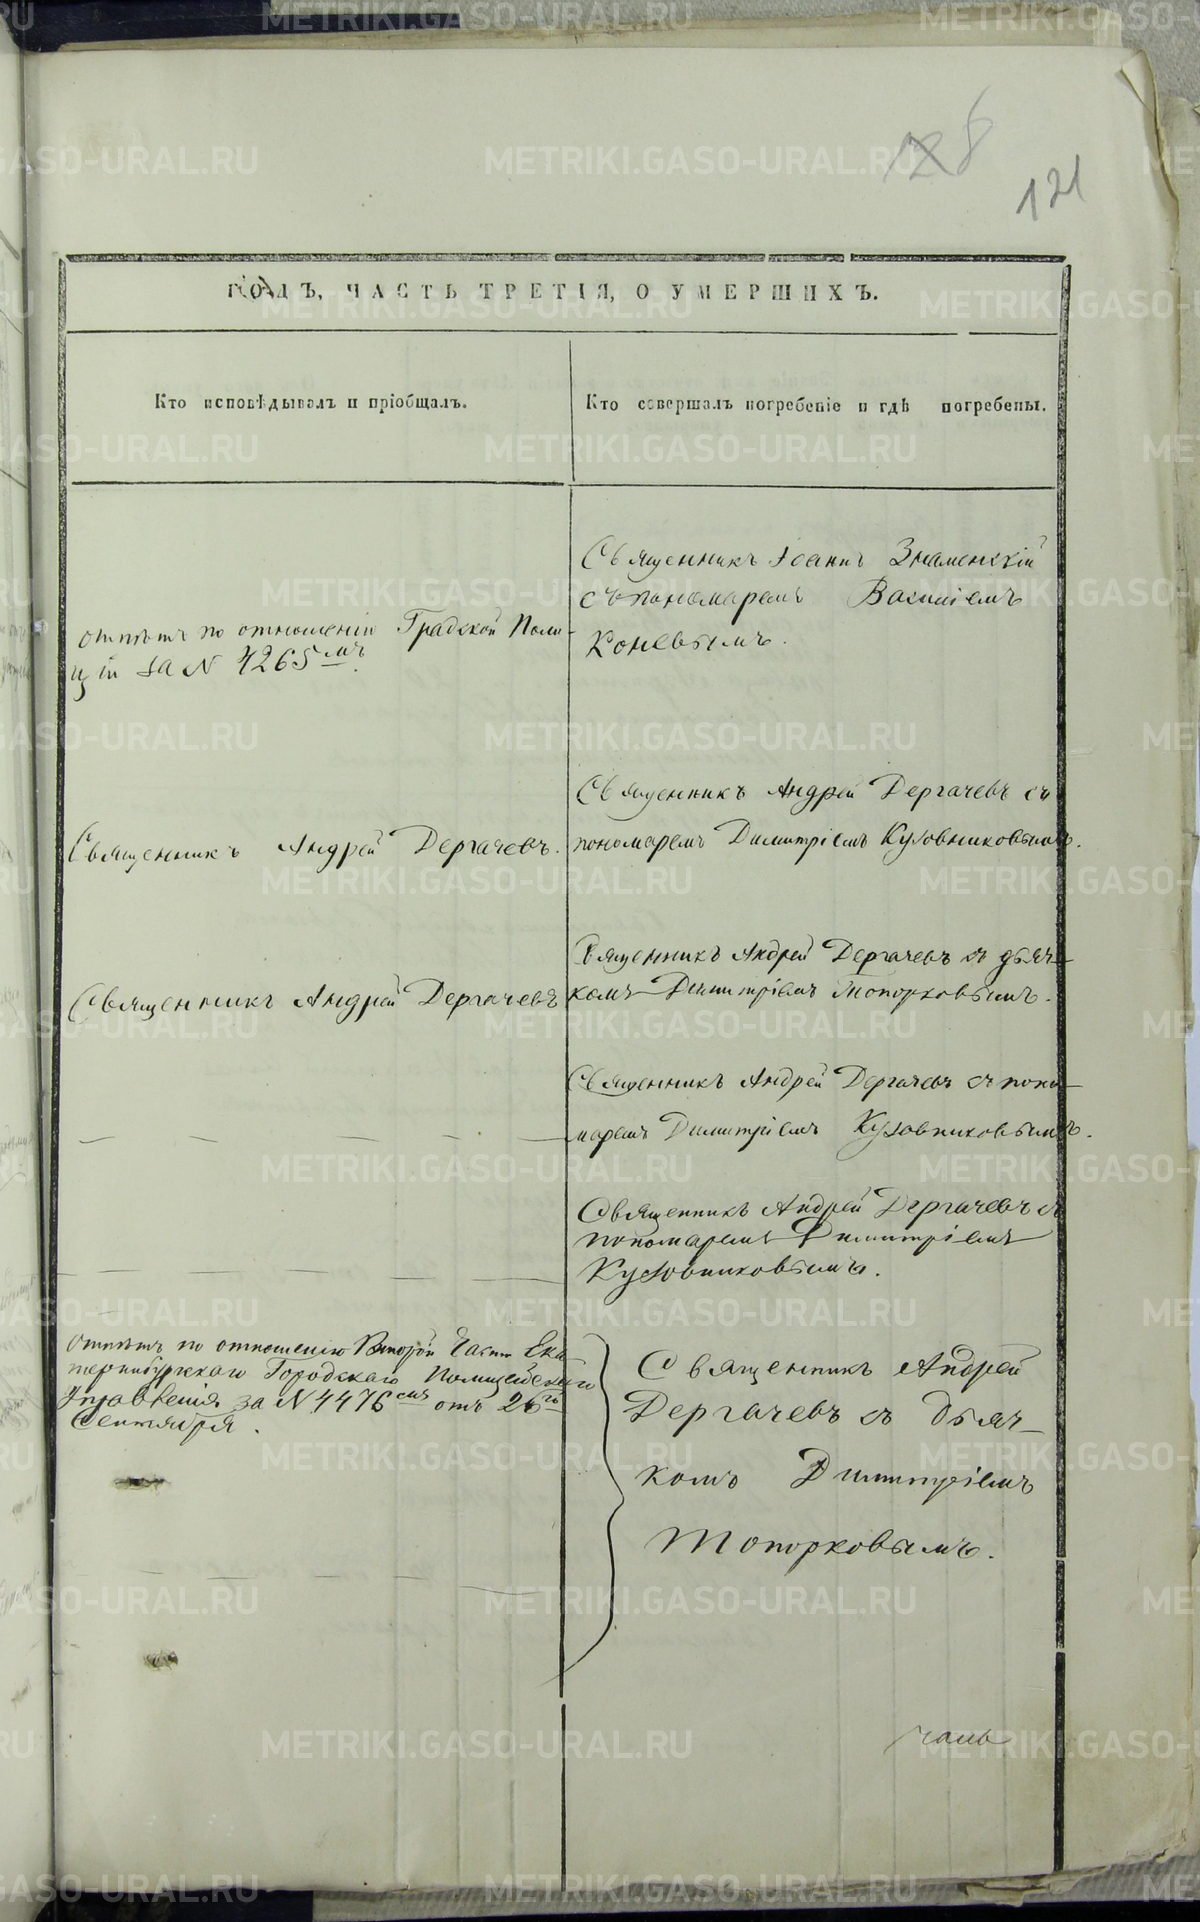 8
121
ГОДЪ, ЧАСТЬ ТРЕТІЯ, О УМЕРШИХЪ.
Кто исповѣдывалъ и пріобщалъ.
Кто совершалъ погребеніе и гдѣ погребены.
отпѣтъ по отношенію Градской Поли-
ціи за N 4265мъ.
Священникъ Іоаннъ Знаменскій
съ пономаремъ Василіемъ
Коневымъ.
Священникъ Андрей Дергачевъ.
Священникъ Андрей Дергачевъ съ
пономаремъ Димитріемъ Кузовниковымъ.
Священникъ Андрей Дергачевъ
Священникъ Андрей Дергачевъ съ дьяч-
комъ Димитріемъ Топорковымъ.
Священникъ Андрей Дергачевъ съ поно-
маремъ Димитріемъ Кузовниковымъ.
Священникъ Андрей Дергачевъ съ
пономаремъ Димитріемъ
Кузовниковымъ.
Отпѣтъ по отношенію Второй Части Ека
теринбургскаго Городскаго Полицейскаго
Управленія за N 4476смъ отъ 26го
Сентября.
Священникъ Андрей
Дергачевъ съ дьяч-
комъ Димитріемъ
Топорковымъ.
METRIKI.GASO-URAL.RU